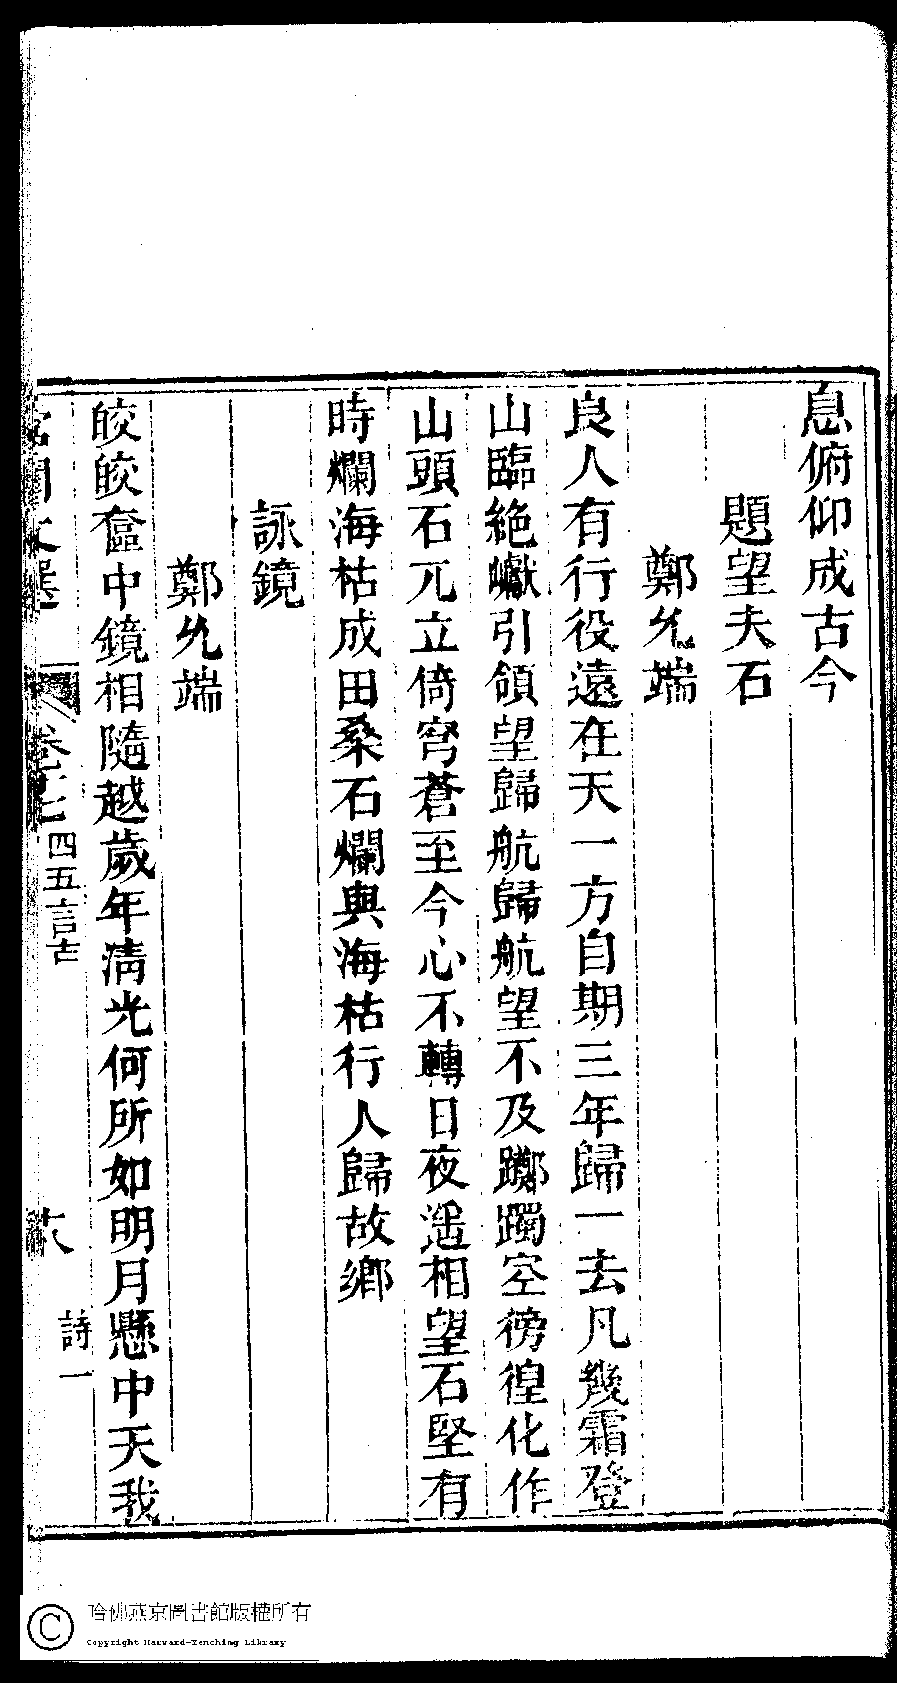 息俯仰成古今
題望夫石
鄭允端
良人有行役遠在天一方自期三年歸一去凡幾霜登
山臨絶巘引領望歸航歸航望不及躑躅空徬徨化作
山頭石兀立倚穹蒼至今心不轉日夜遥相望石堅有
時爛海枯成田桑石爛與海枯行人歸故鄉
詠鏡
鄭允端
皎皎奩中鏡相隨越歲年清光何所如明月懸中天我
文選
卷十七
四五言古
詩一
哈佛燕京圖書館版權所有
Copyright Harvard-Yenching Library